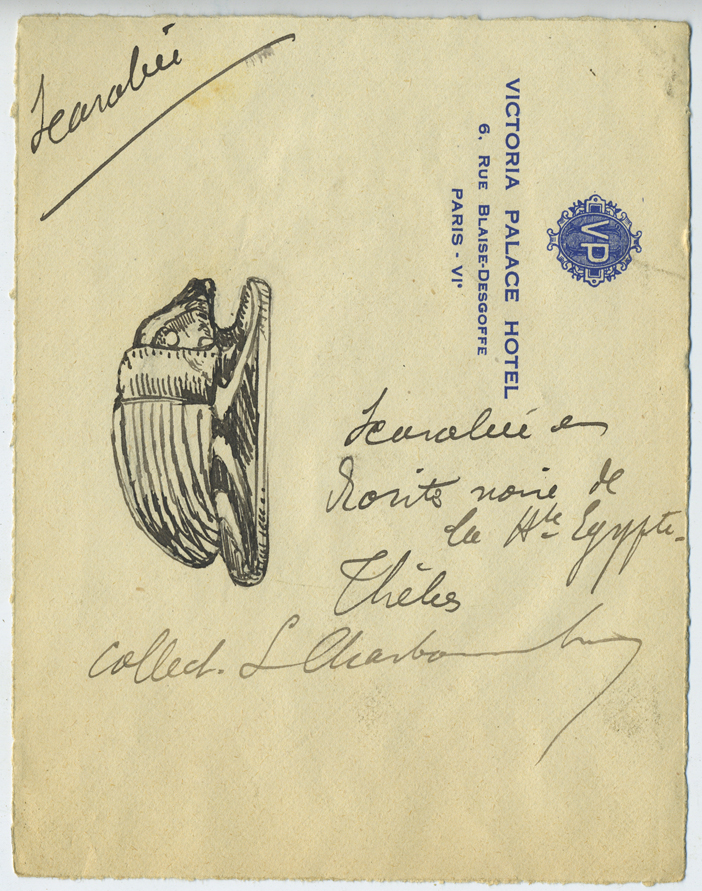 Scarabée
VP
VICTORIA PALACE HOTEL
6, RUE BLAISE-DESGOFFE
PARIS - VIᵉ
Scarabée en
noire de
la Hte Egypte-
Thèbes
Collect. L Charbonneau